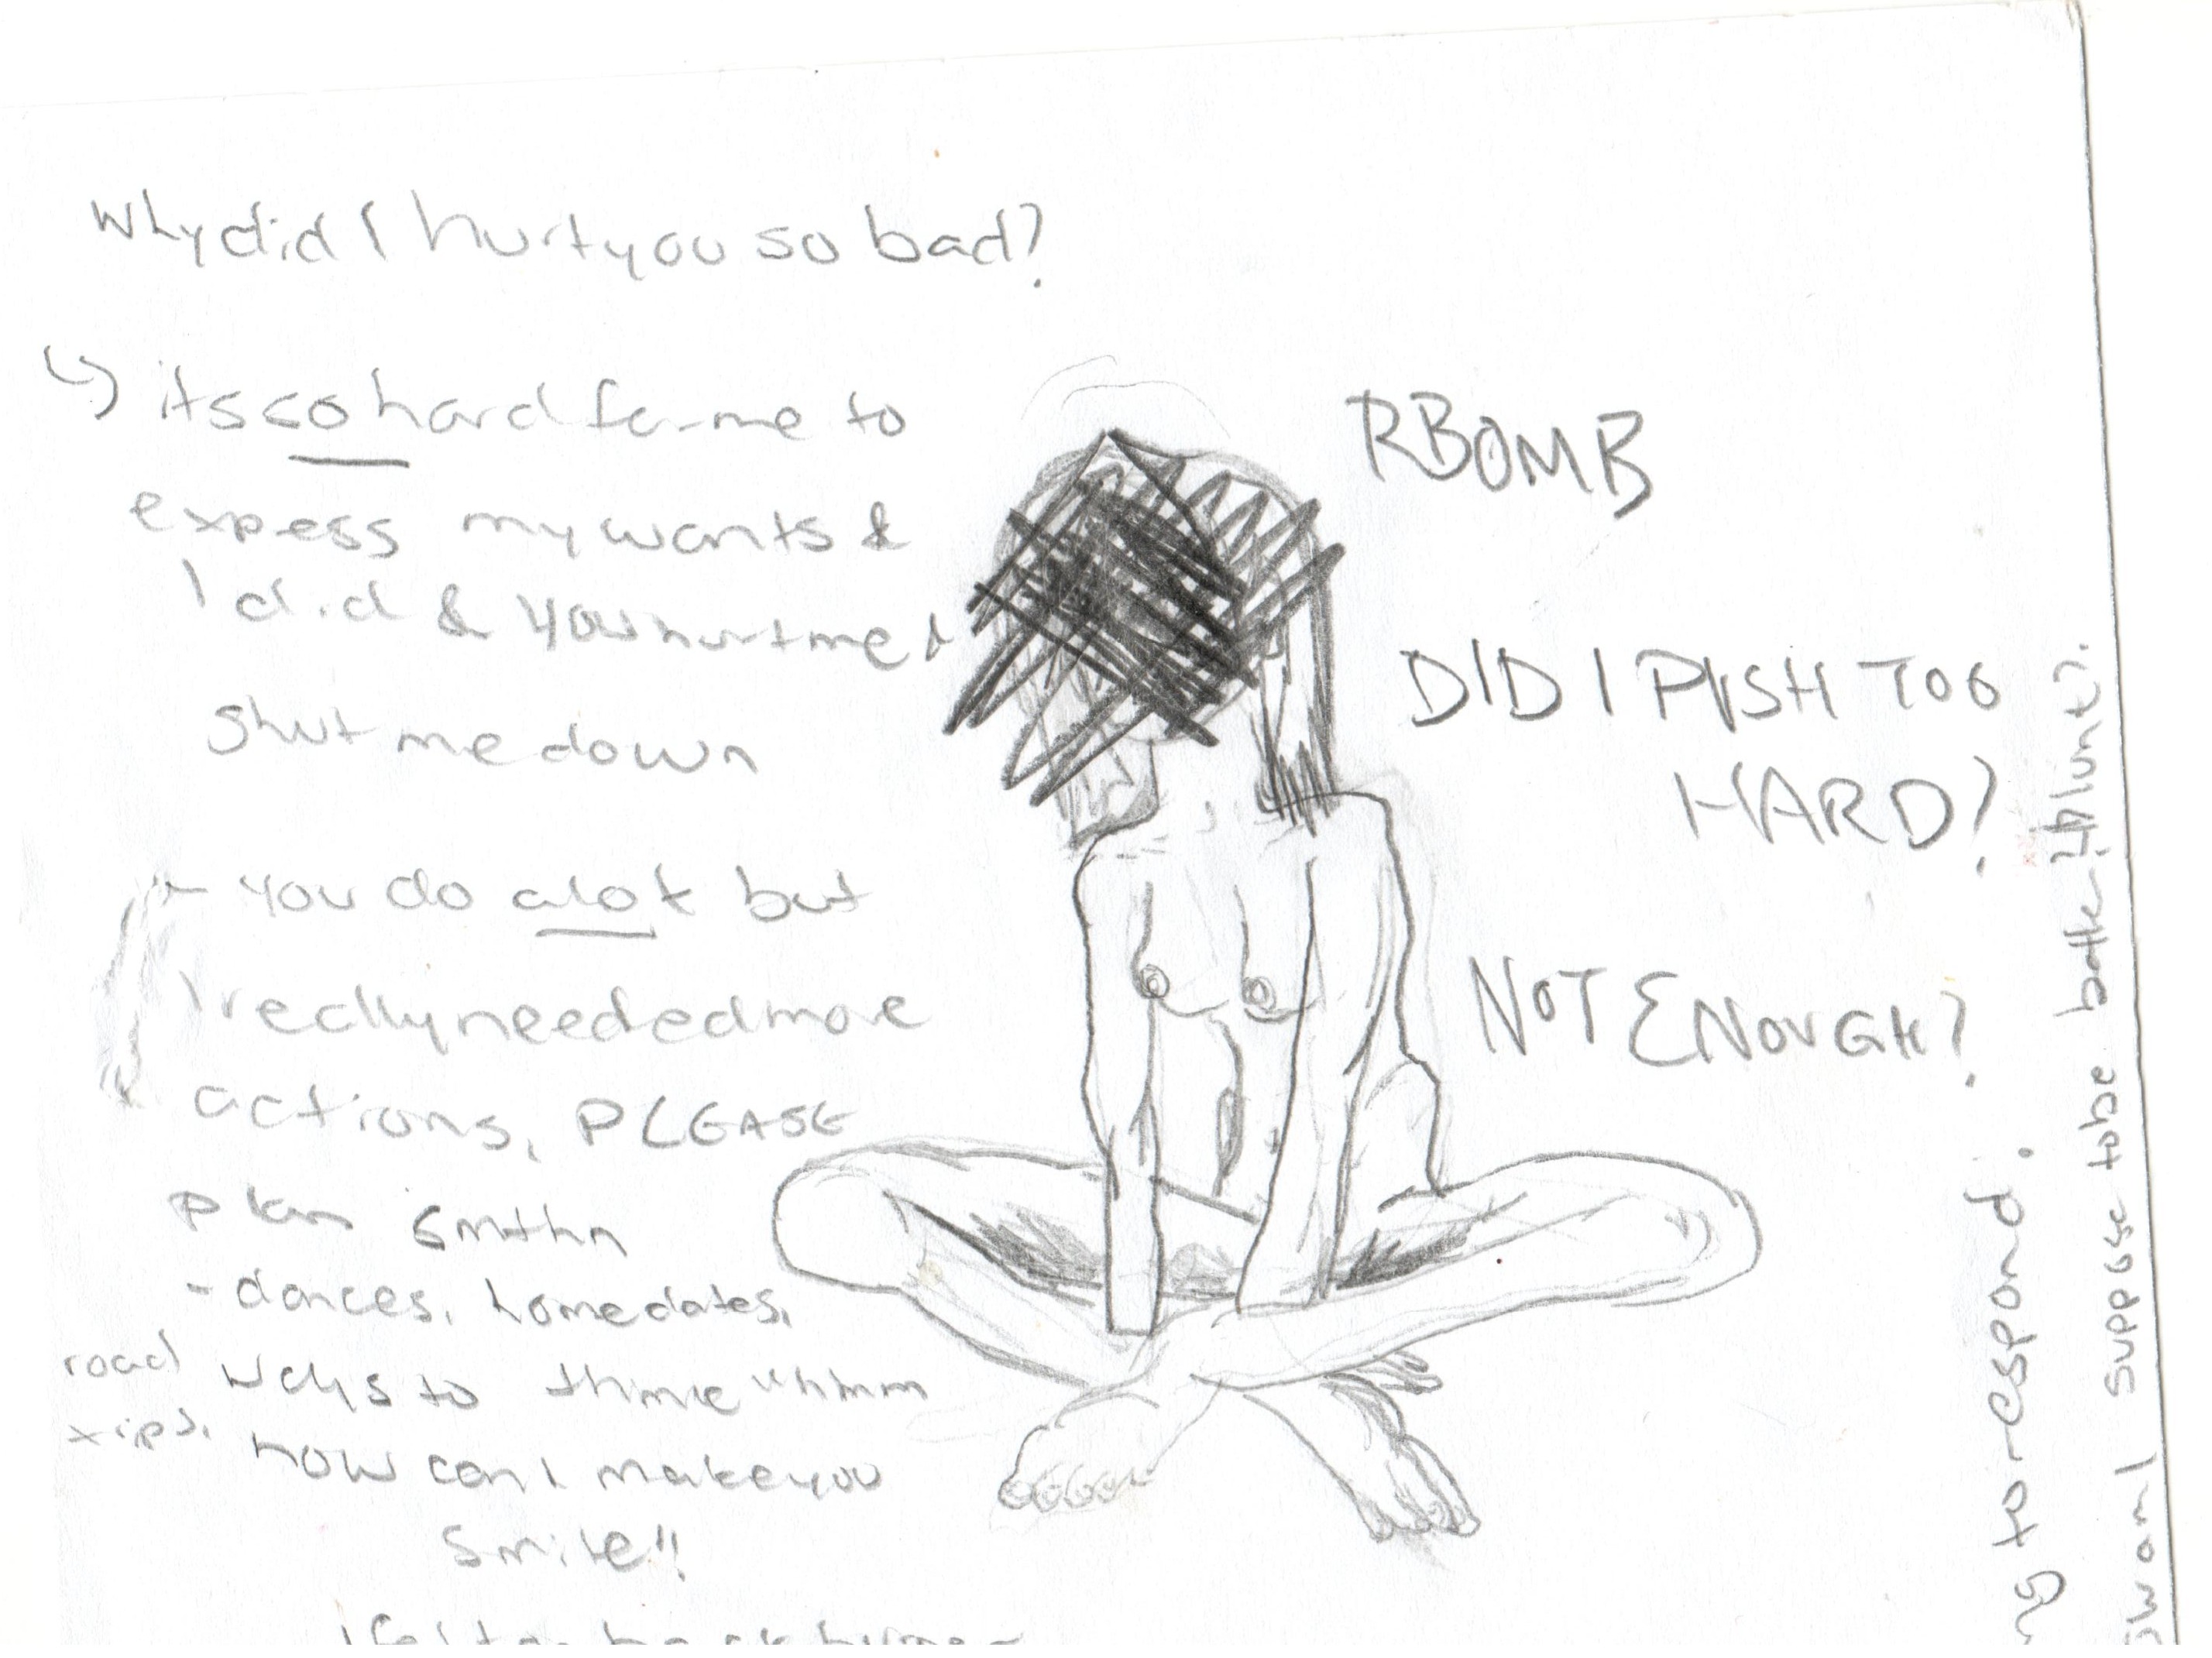 why did I hurt you so bad?
↳ its so hard for me to
expess my wants &
I did & you hurt me &
shut me down
you do alot but
I really needed more
actions, PLEASE
plan smthn
- dances, home dates,
road trips,
ways to think "hmm
how can I make you
smile"!
RBOMB
DID I PUSH TOO
HARD?
NOT ENOUGH?
to respond.
am I suppose to be both blunt?